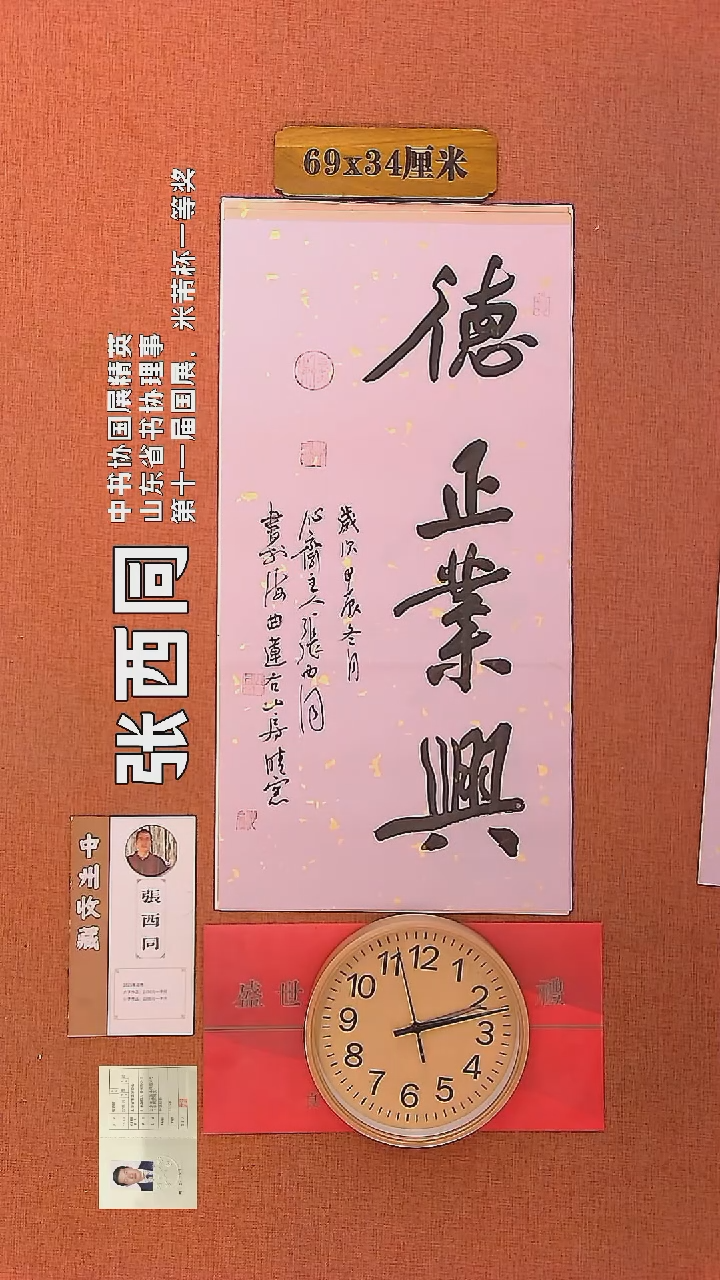 69x34厘米
德正業興
歲次甲辰冬月
心齋主人張西同
書於海曲蓮石山房晴窓
中书协国展精英
山东省书协理事
第十一届国展、米芾杯一等奖
张西同
張西同
盛世
禮
12
1
2
3
4
5
6
7
8
9
10
11